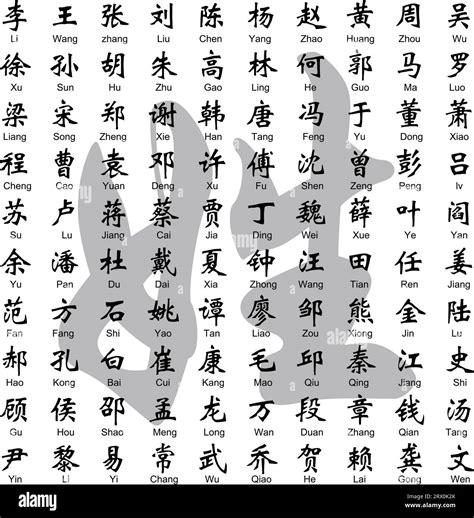 李 王 张 刘 陈 杨 赵 黄 周 吴
Li Wang zhang Liu Chen Yang Zhao Huang Zhou Wu
徐 孙 胡 朱 高 林 何 郭 马 罗
Xu Sun Hu Zhu Gao Lin He Guo Ma Luo
梁 宋 郑 谢 韩 唐 冯 于 董 萧
Liang Song Zheng Xie Han Tang Feng Yu Dong Xiao
程 曹 袁 邓 许 傅 沈 曾 彭 吕
Cheng Cao Yuan Deng Xu Fu Shen Zeng Peng lv
苏 卢 蒋 蔡 贾 丁 魏 薛 叶 阎
Su Lu Jiang Cai Jia Ding Wei Xue Ye Yan
余 潘 杜 戴 夏 钟 汪 田 任 姜
Yu Pan Du Dai Xia Zhong Wang Tian Ren Jiang
范 方 石 姚 谭 廖 邹 熊 金 陆
Fan Fang Shi Yao Tan Liao Zou Xiong Jin Lu
郝 孔 白 崔 康 毛 邱 秦 江 史
Hao Kong Bai Cui Kang Mao Qiu Qin Jiang Shi
顾 侯 邵 孟 龙 万 段 章 钱 汤
Gu Hou Shao Meng Long Wan Duan Zhang Qian Tang
尹 黎 易 常 武 乔 贺 赖 龚 文
Yin Li Yi Chang Wu Qiao He Lai Gong Wen
姓
alamy
Image ID: 2RX0K2K
www.alamy.com